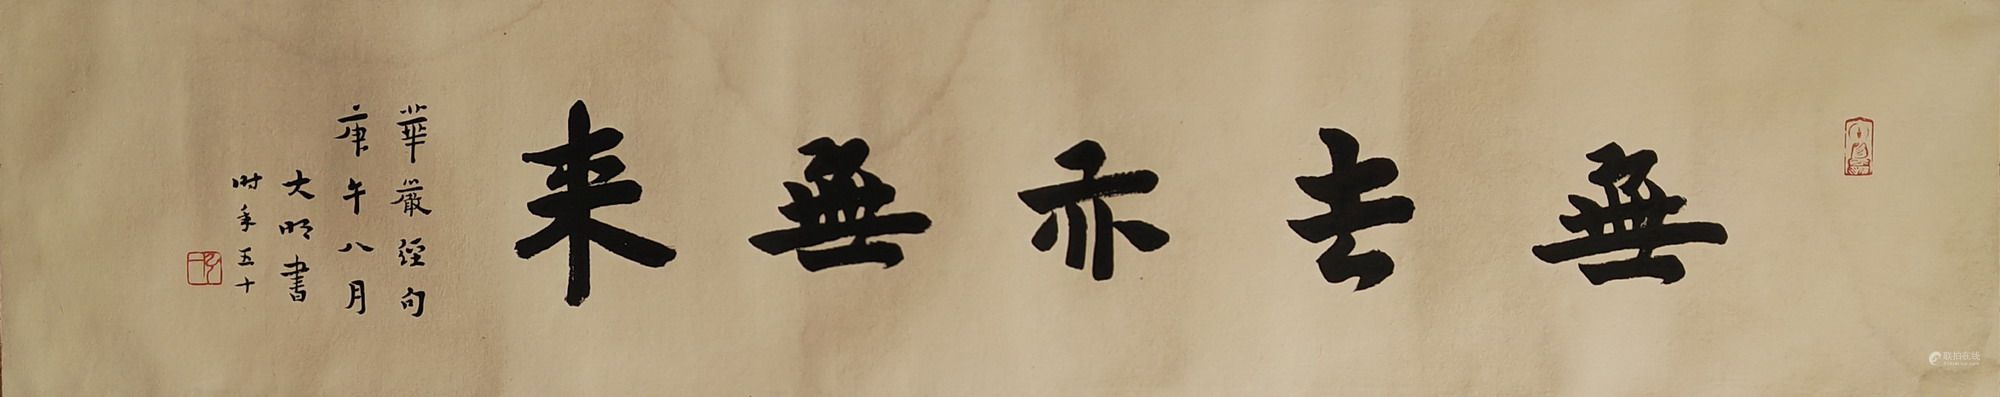 無去亦無来
華嚴經句
庚午八月
大明書
时年五十
联拍在线